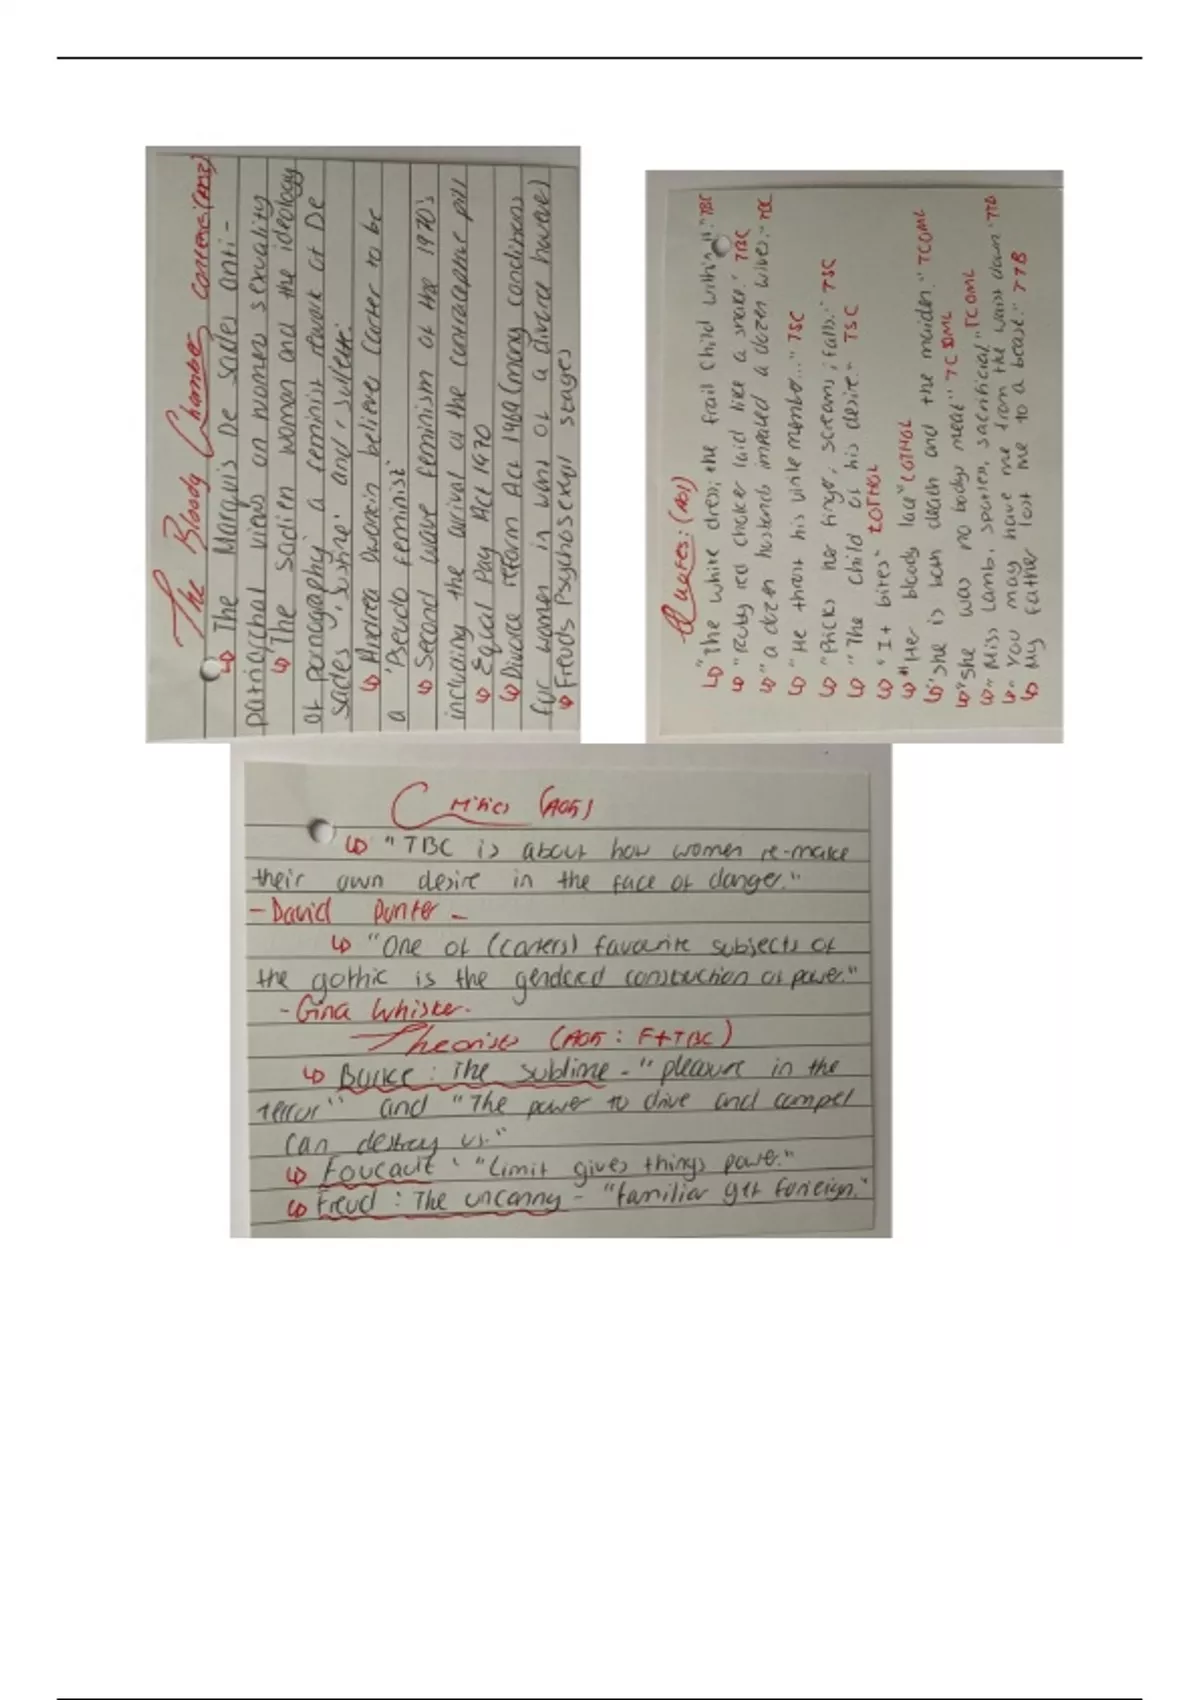 The Bloody Chamber context: (AO3)
↳ The Marquis De Sades anti-
patriarchal views on womens sexuality
↳ 'The sadien women and the ideology
of pornography' a feminist rework of De
Sades 'Justine' and 'Juliette'.
↳ Andrea Dworkin believes Carter to be
a 'Pseudo feminist'
↳ Second wave feminism of the 1970's
including the arival of the contraceptive pill
↳ Equal Pay Act 1970
↳ Divorce reform Act 1969 (many conditions
for women in want of a divorce however)
↳ Freuds Psychosexual stages
Quotes: (AO1)
↳ "The white dress; the frail child within it." TBC
↳ "Ruby red choker laid like a snake." TBC
↳ "a dozen husbands impaled a dozen wives." TBC
↳ "He thrust his virile member..." TSC
↳ "Pricks her finger; screams; falls." TSC
↳ "The child of his desire." TSC
↳ "It bites" LOTHOL
↳ "Her bloody lace" LOTHOL
↳ "She is both death and the maiden." TCOML
↳ "She was no bodys meat" TCOML
↳ "Miss Lamb, spotless, sacrificial." TCOML
↳ "You may have me from the waist down." TTB
↳ My father lost me to a beast." TTB
Critics (AO5)
↳ "TBC is about how women re-make
their own desire in the face of danger."
- David Punter -
↳ "One of (Carters) favourite subjects of
the gothic is the gendered construction of power."
- Gina Whisker.
Theorists (AO5: F+TBC)
↳ Burke: The sublime - "pleasure in the
terror" and "The power to drive and compel
can destroy us."
↳ Foucault: "Limit gives things power."
↳ Freud: The uncanny - "familiar yet foreign."